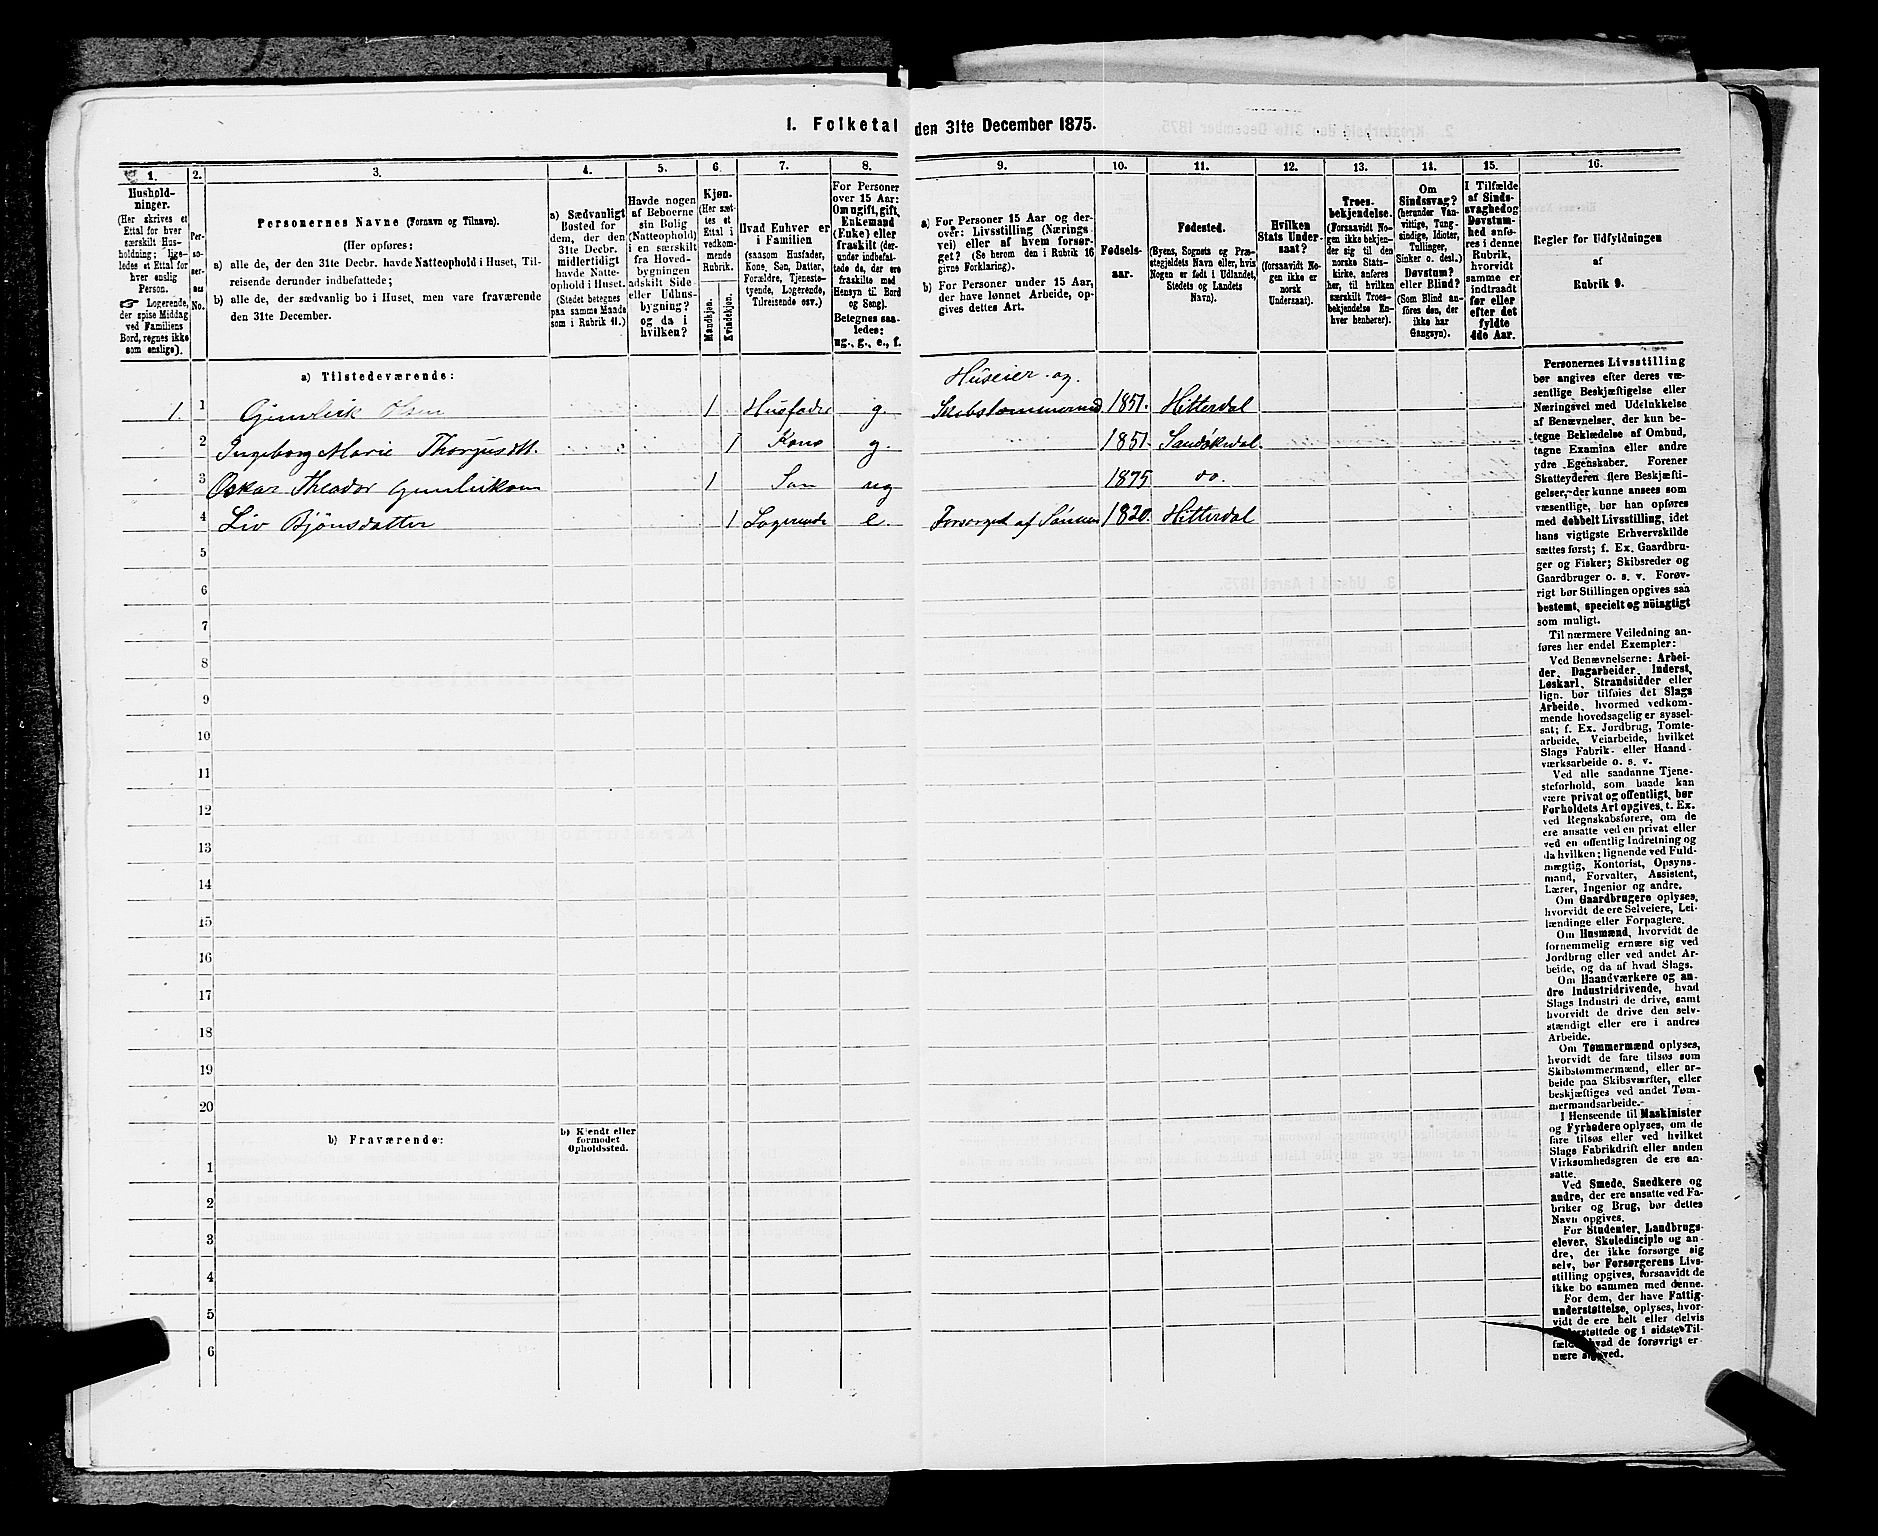 1. Folketal den 31te December 1875.
1.
Hushold-
ninger.
(Her skrives et
Ettal for hver
særskilt Hus-
holdning; lige-
ledes et Ettal for
hver enslig
Person.
☞ Logerende,
der spise Middag
ved Familiens
Bord, regnes ikke
som enslige).
2.
Per-
soner-
nes
No.
3.
Personernes Navne (Fornavn og Tilnavn).
(Her opføres:
a) alle de, der den 31te Decbr. havde Natteophold i Huset, Til-
reisende derunder indbefattede;
b) alle de, der sædvanlig bo i Huset, men vare fraværende
den 31te December.
4.
a) Sædvanligt
Bosted for
dem, der den
31te Decbr.
midlertidigt
havde Natte-
ophold i Huset.
(Stedet betegnes
paa samme Maade
som i Rubrik 11.)
5.
Havde nogen
af Beboerne
sin Bolig
(Natteophold)
i en særskilt
fra Hoved-
bygningen
adskilt Side
eller Udhus-
bygning?
og da i
hvilken?
6.
Kjøn.
(Her sæt-
tes et
Ettal i
vedkom-
mende
Rubrik.
Mandkjøn.
Kvindekjøn.
7.
Hvad Enhver er
i Familien
(saasom Husfader,
Kone, Søn, Datter,
Forældre, Tjeneste-
tyende, Logerende,
Tilreisende osv.)
8.
For Personer
over 15 Aar:
Om ugift, gift,
Enkemand
(Enke) eller
fraskilt (der-
under indbefat-
tede de, der ere
fraskilte med
Hensyn til Bord
og Seng).
Betegnes saa-
ledes:
ug., g., e., f.
9.
a) For Personer 15 Aar og der-
over: Livsstilling (Nærings-
vei) eller af hvem forsør-
get? (Se herom den i Rubrik 16
givne Forklaring).
b) For Personer under 15 Aar,
der have lønnet Arbeide, op-
gives dettes Art.
10.
Fødsels-
aar.
11.
Fødested.
(Byens, Sognets og Præ-
stegjeldets Navn eller, hvis
Nogen er født i Udlandet,
Stedets og Landets
Navn).
12.
Hvilken
Stats Under-
saat?
(forsaavidt No-
gen ikke er
norsk
Undersaat).
13.
Troes-
bekjendelse.
(Forsaavidt No-
gen ikke bekjen-
der sig til den
norske Stats-
kirke, anføres
her, til hvilken
særskilt Troes-
bekjendelse En-
hver henhører).
14.
Om
Sindssvag?
(herunder Van-
vittige, Tung-
sindige, Idioter,
Tullinger,
Sinker o. desl.)
Døvstum?
eller Blind?
(Som Blind an-
føres den, der
ikke har
Gangsyn).
15.
I Tilfælde
af Sinds-
svaghed og
Døvstum-
hed anfø-
res i denne
Rubrik,
hvorvidt
samme er
indtraadt
før eller
efter det
fyldte
4de Aar.
16.
Regler for Udfyldningen
af
Rubrik 9.
a) Tilstedeværende:
Huseier og
1. 1 Olsen 1 Husfader g. 1851. Hitterdal
2 Ingeborg Marie 1 Kone g. 1851. Sandøkedal.
3 Oskar Theodor 1 Søn ug 1875 do.
4 Liv Bjønsdatter 1 Logerende e. Forsørget af Sønnen 1820. Hitterdal
5
6
7
8
9
10
11
12
13
14
15
16
17
18
19
20
b) Fraværende:
b) Kjendt eller
formodet
Opholdssted.
1
2
3
4
5
6
Personernes Livsstilling
bør angives efter deres væ-
sentlige Beskjæftigelse eller
Næringsvei med Udelukkelse
af Benævnelser, der kun be-
tegne Beklædelse af Ombud,
tagne Examina eller andre
ydre Egenskaber. Forener
Skatteyderen flere Beskjæfti-
gelser, der kunne ansees som
væsentlige, bør han opføres
med dobbelt Livsstilling, idet
hans vigtigste Erhvervskilde
sættes først; f. Ex. Gaardbru-
ger og Fisker; Skibsreder og
Gaardbruger o. s. v. Forøv-
rigt bør Stillingen opgives saa
bestemt, specielt og nöiagtigt
som muligt.
Til nærmere Veiledning an-
føres her endel Exempler:
Ved Benævnelserne: Arbei-
der, Dagarbeider, Inderst,
Løskarl, Strandsidder eller
lign. bør tilføies det Slags
Arbeide, hvormed vedkom-
mende hovedsagelig er syssel-
sat; f. Ex. Jordbrug, Tomte-
arbeide, Veiarbeide, hvilket
Slags Fabrik- eller Haand-
værksarbeide o. s. v.
Ved alle saadanne Tjene-
steforhold, som baade kan
være privat og offentligt, bør
Forholdets Art opgives, t. Ex.
ved Regnskabsførere, om de
ere ansatte ved en privat eller
ved en offentlig Indretning og
da hvilken; lignende ved Fuld-
mægtig, Kontorist, Opsyns-
mand, Forvalter, Assistent,
Lærer, Ingeniør og andre.
Om Gaardbrugere oplyses,
hvorvidt de ere Selveiere, Lei-
lændinge eller Forpagtere.
Om Husmænd, hvorvidt de
fornemmelig ernære sig ved
Jordbrug eller ved andet Ar-
beide, og da af hvad Slags.
Om Haandværkere og an-
dre Industridrivende, hvad
Slags Industri de drive, samt
hvorvidt de drive den selv-
stændigt eller ere i andres
Arbeide.
Om Tømmermænd oplyses,
hvorvidt de fare tilsøs som
Skibstømmermænd, eller ar-
beide paa Skibsværfter, eller
beskjæftiges ved andet Tøm-
mermandsarbeide.
I Henseende til Maskinister
og Fyrbødere oplyses, om de
fare tilsøs eller ved hvilket
Slags Fabrikdrift eller anden
Virksomhedsgren de ere an-
satte.
Ved Smede, Snedkere og
andre, der ere ansatte ved Fa-
briker og Brug, bør dettes
Navn opgives.
For Studenter, Landbrugs-
elever, Skoledisciple og an-
dre, der ikke forsørge sig
selv, bør Forsørgerens Livs-
stilling opgives, forsaavidt de
ikke bo sammen med denne.
For dem, der have Fattig-
understøttelse, oplyses, hvor-
vidt de ere helt eller delvis
understøttede og i sidste Til-
fælde hvad de forøvrigt er-
nære sig ved.